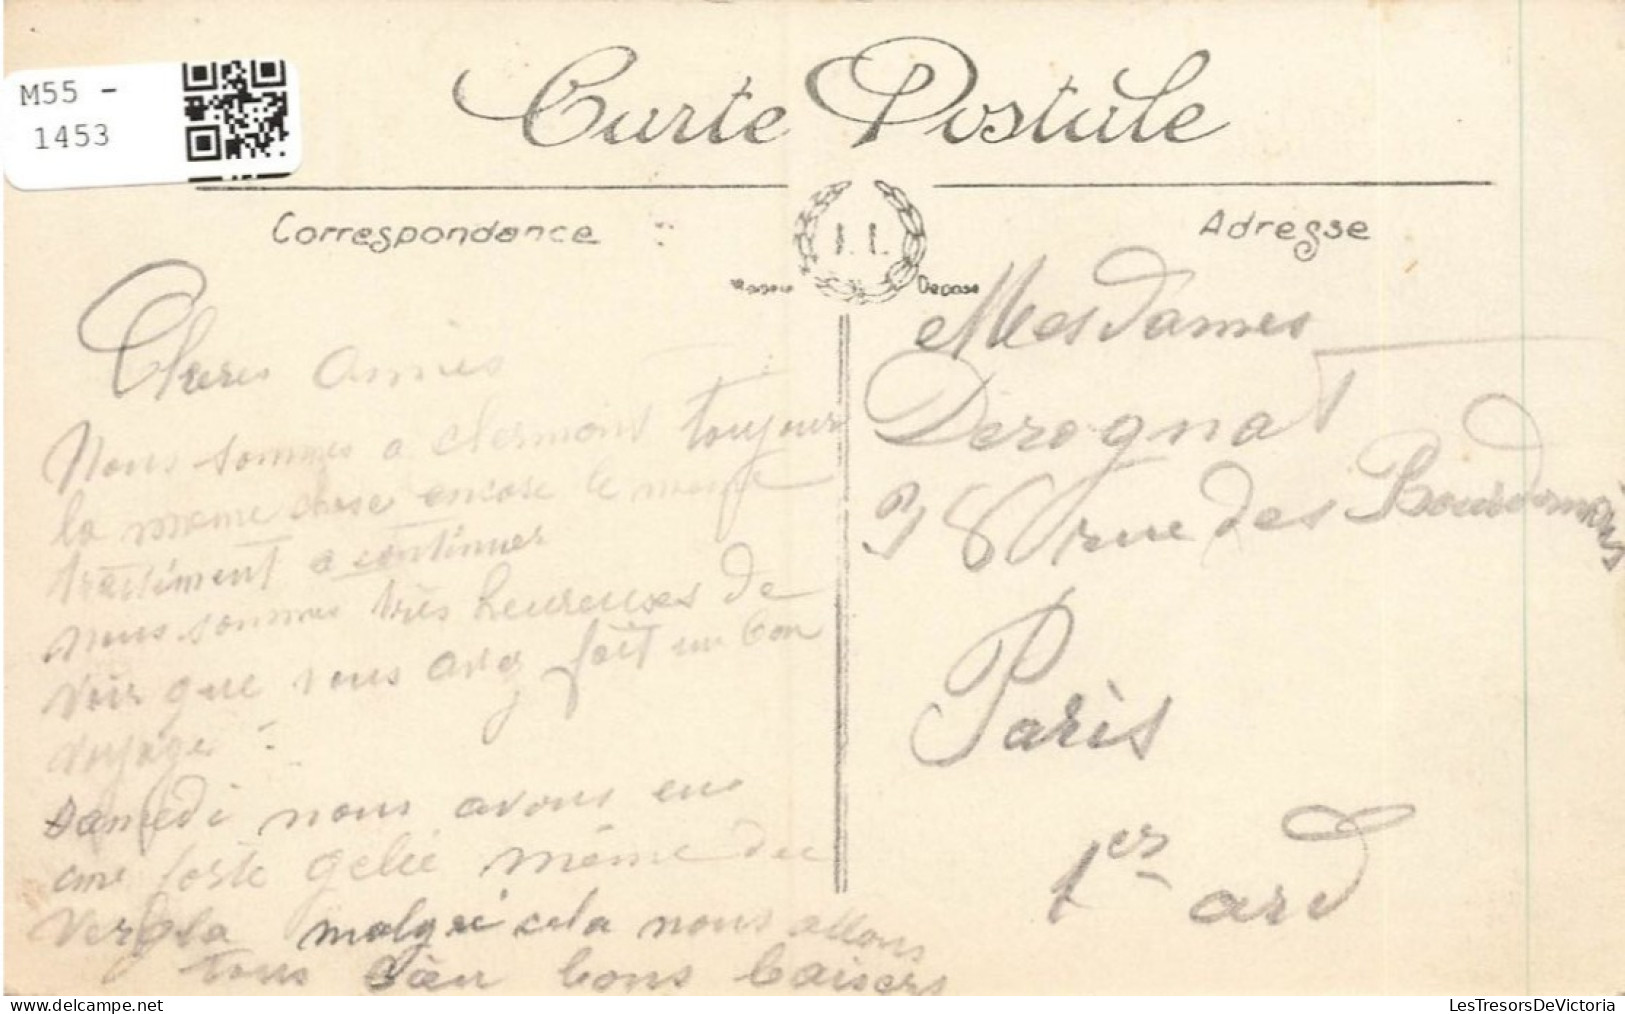 M55 -
1453
Carte Postale
Correspondance
Adresse
Marque Déposée
Cheres amies
Nous sommes a clermont toujours
la meme chose encore le meme
traitement a continuer
nous sommes très heureuses de
voir que vous avez fait un bon
voyage
Samedi nous avons eu
une forte gelée même du
vergla malgré cela nous allons
tous bien bons baisers
MesDames
Derognat
38 rue des Bourdonnais
Paris
1er ard
LesTresorsDeVictoria